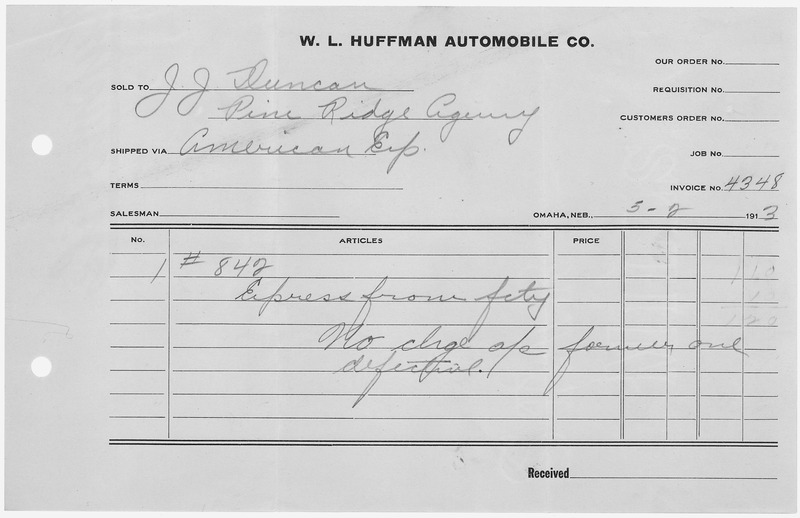 W. L. HUFFMAN AUTOMOBILE CO.
OUR ORDER NO.
SOLD TO J J Duncan
REQUISITION NO.
Pine Ridge Agency
CUSTOMERS ORDER NO.
SHIPPED VIA American Exp.
JOB NO.
TERMS
INVOICE NO. 4348
SALESMAN
OMAHA, NEB., 5-2 1913
NO. ARTICLES PRICE
1 # 842 1 10
Express from fcty
No chge a/c former one
defective.
Received